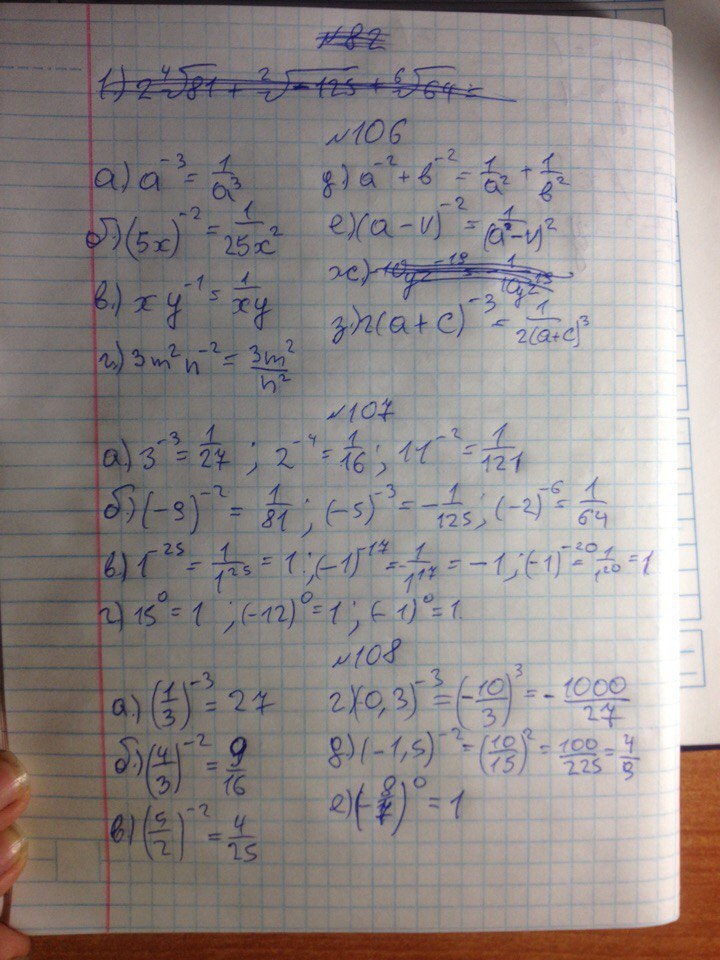 №82
1.) 2⁴√81 + ²√-125 + ⁶√64 =
№106
а.) a⁻³ = 1/a³
б.) (5x)⁻² = 1/25x²
в.) x y⁻¹ = 1/xy
г.) 3m²n⁻² = 3m²/n²
д.) a⁻² + в⁻² = 1/a² + 1/в²
е.) (a - v)⁻² = 1/(a²-v)²
ж.)
з.) 2(a + c)⁻³ = 1/2(a+c)³
№107
а.) 3⁻³ = 1/27 ; 2⁻⁴ = 1/16 ; 11⁻² = 1/121
б.) (-9)⁻² = 1/81 ; (-5)⁻³ = -1/125 ; (-2)⁻⁶ = 1/64
в.) 1⁻²⁵ = 1/1²⁵ = 1 ; (-1)⁻¹⁷ = -1/1¹⁷ = -1 ; (-1)⁻²⁰ = 1/1²⁰ = 1
г.) 15⁰ = 1 ; (-12)⁰ = 1 ; (-1)⁰ = 1
№108
а.) (1/3)⁻³ = 27
б.) (4/3)⁻² = 9/16
в.) (5/2)⁻² = 4/25
г.) (0,3)⁻³ = (-10/3)³ = -1000/27
д.) (-1,5)⁻² = (10/15)² = 100/225 = 4/9
е.) (-8/7)⁰ = 1